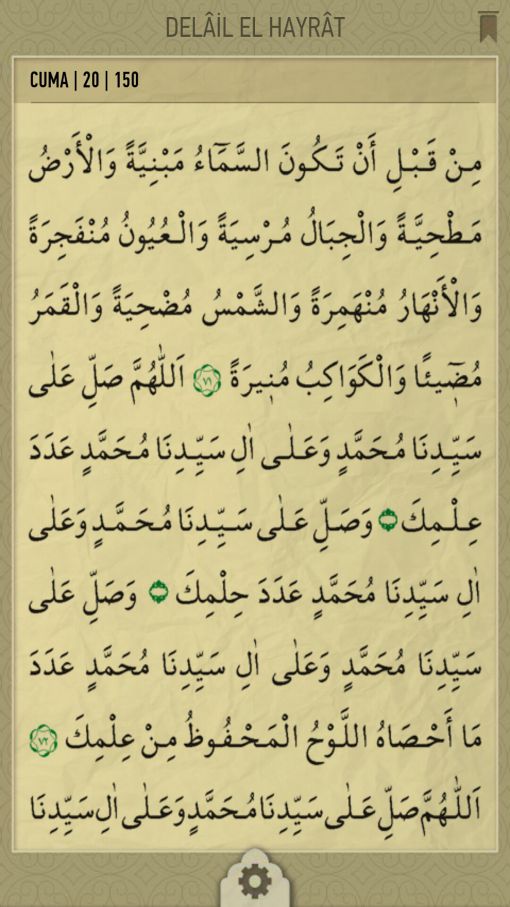 DELÂİL EL HAYRÂT
CUMA | 20 | 150
مِنْ قَبْلِ أَنْ تَكُونَ السَّمَٓاءُ مَبْنِيَّةً وَالْأَرْضُ
مَطْحِيَّةً وَالْجِبَالُ مُرْسِيَةً وَالْعُيُونُ مُنْفَجِرَةً
وَالْأَنْهَارُ مُنْهَمِرَةً وَالشَّمْسُ مُضْحِيَةً وَالْقَمَرُ
مُضِٓيئًا وَالْكَوَاكِبُ مُنِيرَةً ٧١ اَللّٰهُمَّ صَلِّ عَلٰى
سَيِّدِنَا مُحَمَّدٍ وَعَلٰى اٰلِ سَيِّدِنَا مُحَمَّدٍ عَدَدَ
عِلْمِكَ وَصَلِّ عَلٰى سَيِّدِنَا مُحَمَّدٍ وَعَلٰى
اٰلِ سَيِّدِنَا مُحَمَّدٍ عَدَدَ حِلْمِكَ وَصَلِّ عَلٰى
سَيِّدِنَا مُحَمَّدٍ وَعَلٰى اٰلِ سَيِّدِنَا مُحَمَّدٍ عَدَدَ
مَا أَحْصَاهُ اللَّوْحُ الْمَحْفُوظُ مِنْ عِلْمِكَ ٧٢
اَللّٰهُمَّ صَلِّ عَلٰى سَيِّدِنَا مُحَمَّدٍ وَعَلٰى اٰلِ سَيِّدِنَا